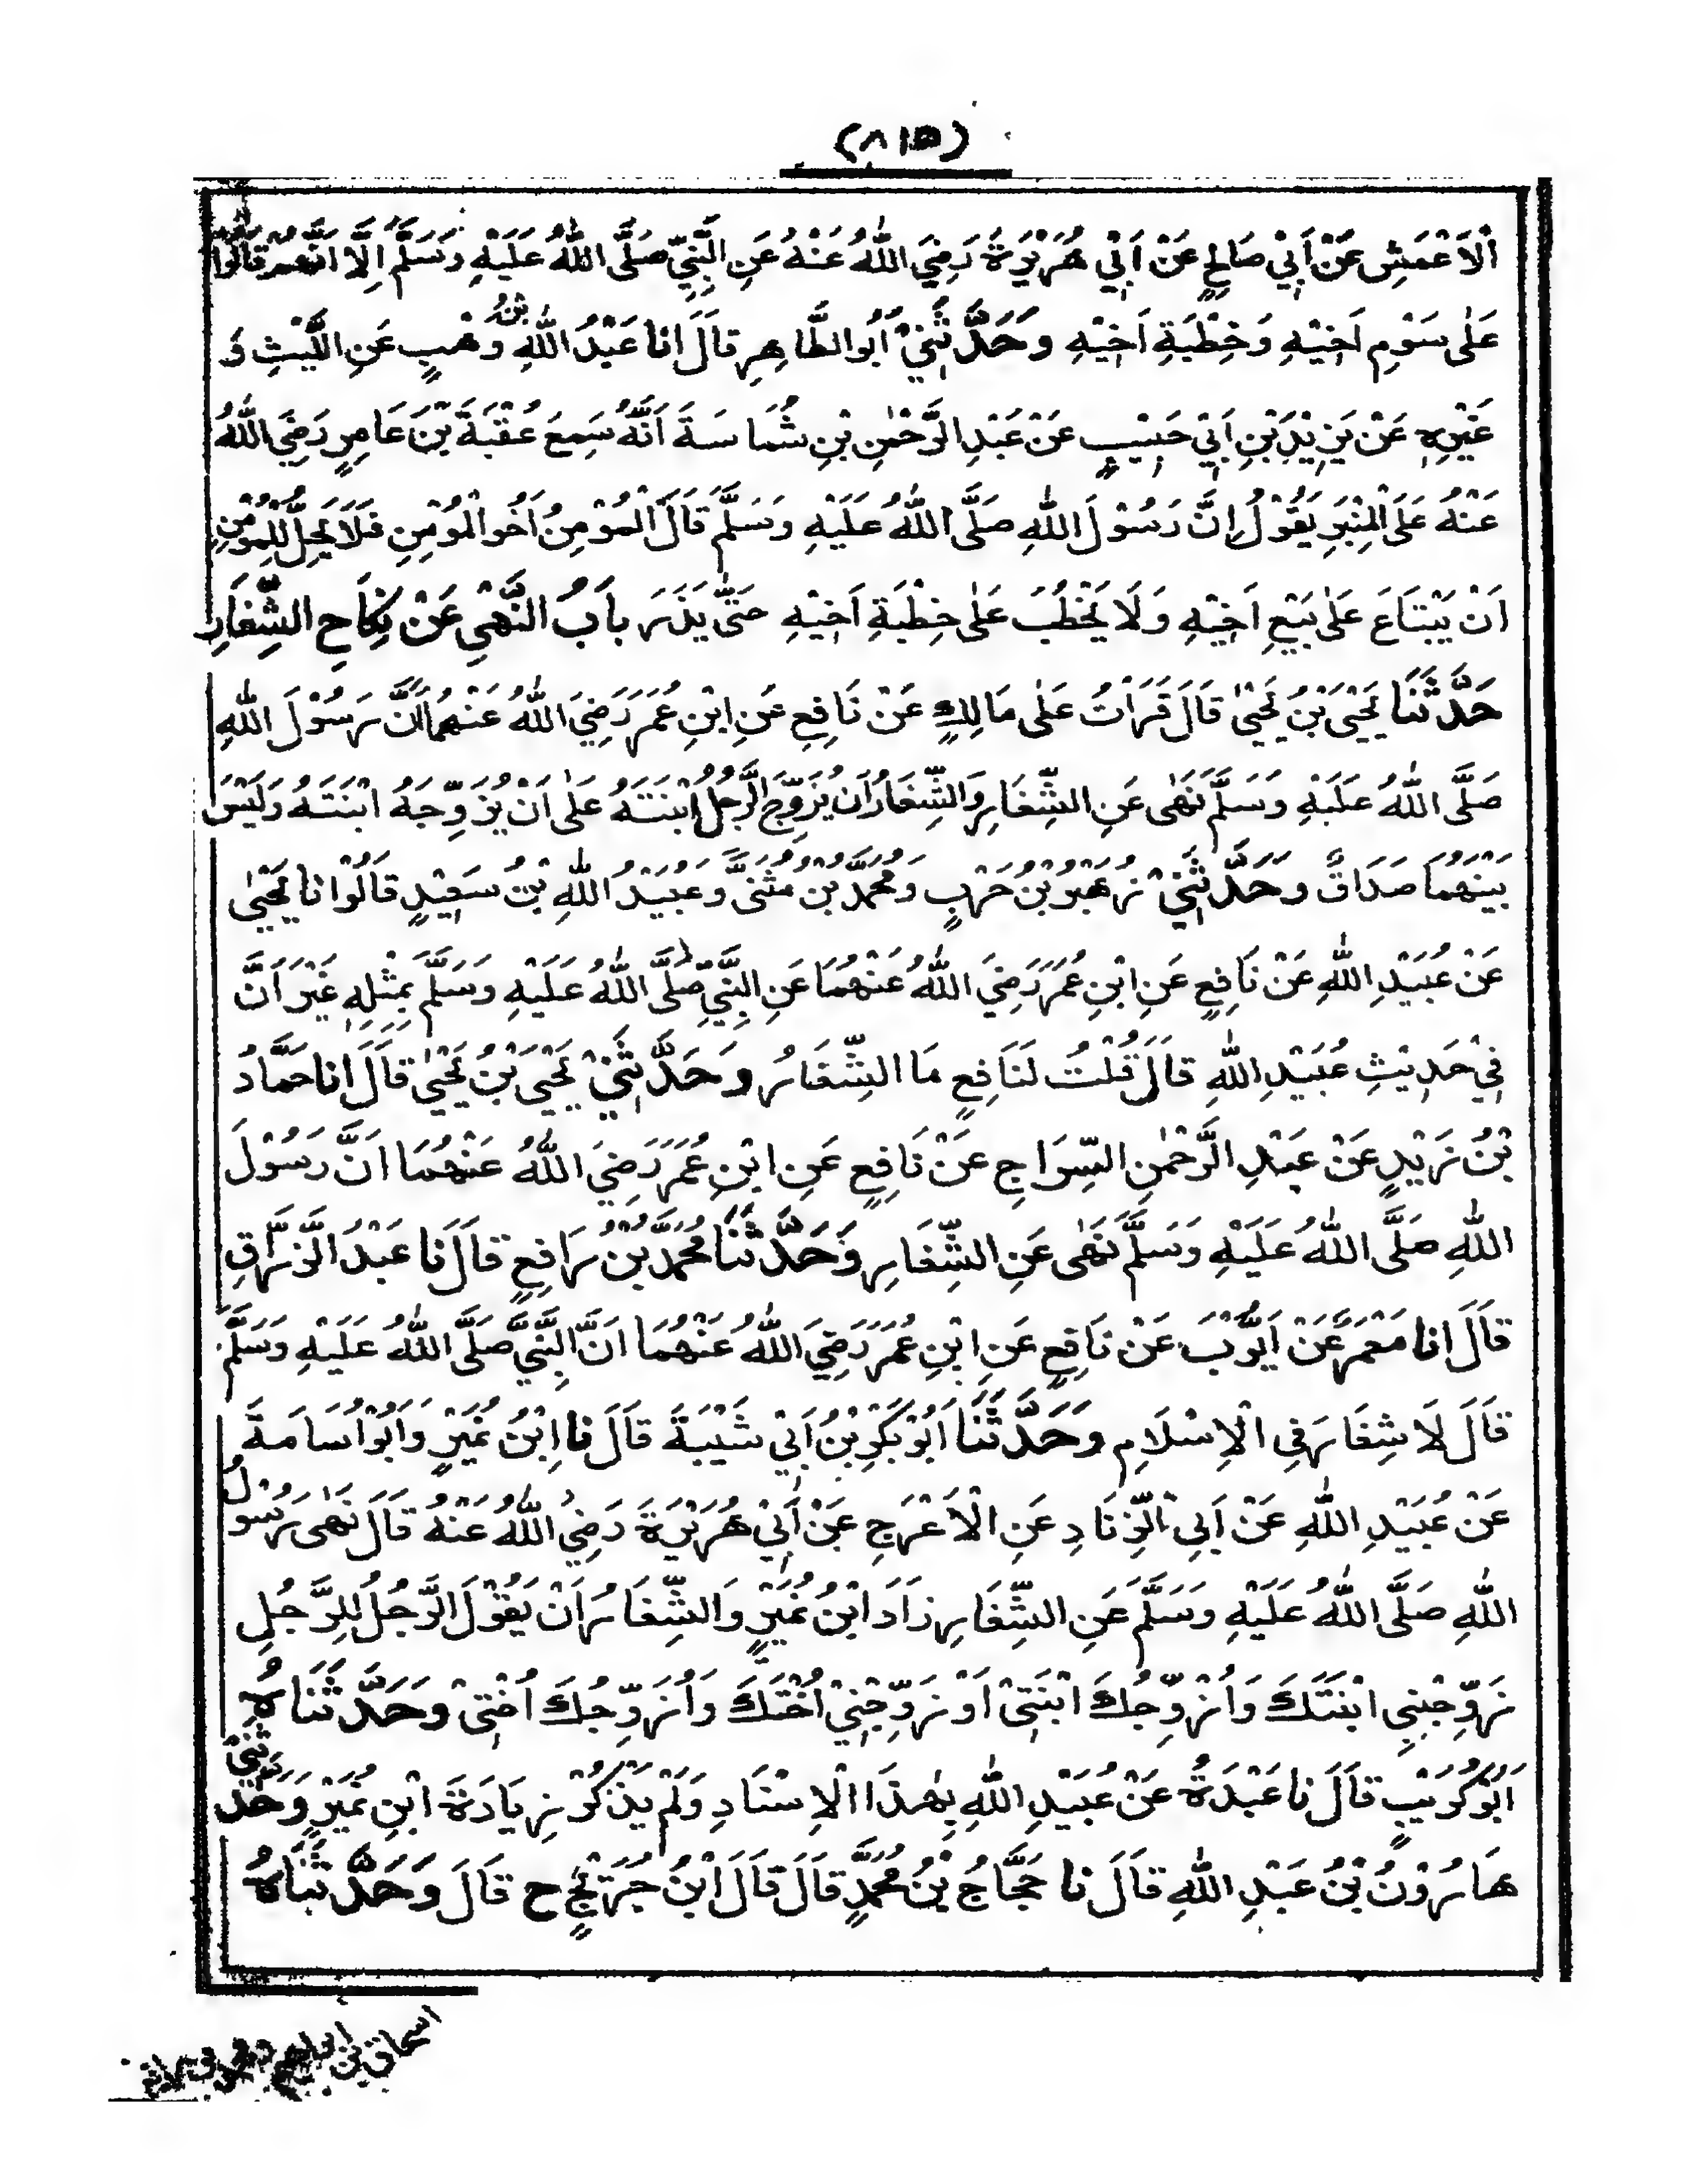 (٨١٥)
اْلاَعْمَشِ عَنْ اَبِيْ صَالِحٍ عَنْ اَبِيْ هُرَيْرَةَ رَضِيَ اللّٰهُ عَنْهُ عَنِ النَّبِيِّ صَلَّى اللّٰهُ عَلَيْهِ وَسَلَّمَ اِلَّا اَنَّهُمْ قَالُوْا
عَلٰى سَوْمِ اَخِيْهِ وَخِطْبَةِ اَخِيْهِ وَحَدَّثَنِيْ اَبُو الطَّاهِرِ قَالَ اَنا عَبْدُ اللّٰهِ بْنُ وَهْبٍ عَنِ اللَّيْثِ وَ
غَيْرِهٖ عَنْ يَزِيْدِ بْنِ اَبِيْ حَبِيْبٍ عَنْ عَبْدِ الرَّحْمٰنِ بْنِ شُمَاسَةَ اَنَّهُ سَمِعَ عُقْبَةَ بْنَ عَامِرٍ رَضِيَ اللّٰهُ
عَنْهُ عَلَى الْمِنْبَرِ يَقُوْلُ اِنَّ رَسُوْلَ اللّٰهِ صَلَّى اللّٰهُ عَلَيْهِ وَسَلَّمَ قَالَ الْمُؤْمِنُ اَخُو الْمُؤْمِنِ فَلَا يَحِلُّ لِلْمُؤْمِنِ
اَنْ يَبْتَاعَ عَلٰى بَيْعِ اَخِيْهِ وَلَا يَخْطُبَ عَلٰى خِطْبَةِ اَخِيْهِ حَتّٰى يَذَرَ بَابُ النَّهْيِ عَنْ نِكَاحِ الشِّغَارِ
حَدَّثَنَا يَحْيَى بْنُ يَحْيٰى قَالَ قَرَأْتُ عَلٰى مَالِكٍ عَنْ نَافِعٍ عَنِ ابْنِ عُمَرَ رَضِيَ اللّٰهُ عَنْهُمَا اَنَّ رَسُوْلَ اللّٰهِ
صَلَّى اللّٰهُ عَلَيْهِ وَسَلَّمَ نَهٰى عَنِ الشِّغَارِ وَالشِّغَارُ اَنْ يُزَوِّجَ الرَّجُلُ ابْنَتَهُ عَلٰى اَنْ يُزَوِّجَهُ ابْنَتَهُ وَلَيْسَ
بَيْنَهُمَا صَدَاقٌ وَحَدَّثَنِيْ زُهَيْرُ بْنُ حَرْبٍ وَمُحَمَّدُ بْنُ مُثَنّٰى وَعُبَيْدُ اللّٰهِ بْنُ سَعِيْدٍ قَالُوْا نا يَحْيٰى
عَنْ عُبَيْدِ اللّٰهِ عَنْ نَافِعٍ عَنِ ابْنِ عُمَرَ رَضِيَ اللّٰهُ عَنْهُمَا عَنِ النَّبِيِّ صَلَّى اللّٰهُ عَلَيْهِ وَسَلَّمَ بِمِثْلِهٖ غَيْرَ اَنَّ
فِيْ حَدِيْثِ عُبَيْدِ اللّٰهِ قَالَ قُلْتُ لِنَافِعٍ مَا الشِّغَارُ وَحَدَّثَنِيْ يَحْيَى بْنُ يَحْيٰى قَالَ اَنا حَمَّادُ
بْنُ زَيْدٍ عَنْ عَبْدِ الرَّحْمٰنِ السِّرَاجِ عَنْ نَافِعٍ عَنِ ابْنِ عُمَرَ رَضِيَ اللّٰهُ عَنْهُمَا اَنَّ رَسُوْلَ
اللّٰهِ صَلَّى اللّٰهُ عَلَيْهِ وَسَلَّمَ نَهٰى عَنِ الشِّغَارِ وَحَدَّثَنَا مُحَمَّدُ بْنُ رَافِعٍ قَالَ نَا عَبْدُ الرَّزَّاقِ
قَالَ اَنا مَعْمَرٌ عَنْ اَيُّوْبَ عَنْ نَافِعٍ عَنِ ابْنِ عُمَرَ رَضِيَ اللّٰهُ عَنْهُمَا اَنَّ النَّبِيَّ صَلَّى اللّٰهُ عَلَيْهِ وَسَلَّمَ
قَالَ لَا شِغَارَ فِي الْاِسْلَامِ وَحَدَّثَنَا اَبُوْ بَكْرِ بْنُ اَبِيْ شَيْبَةَ قَالَ نا اِبْنُ نُمَيْرٍ وَاَبُوْ اُسَامَةَ
عَنْ عُبَيْدِ اللّٰهِ عَنْ اَبِي الزِّنَادِ عَنِ الْاَعْرَجِ عَنْ اَبِيْ هُرَيْرَةَ رَضِيَ اللّٰهُ عَنْهُ قَالَ نَهٰى رَسُوْلُ
اللّٰهِ صَلَّى اللّٰهُ عَلَيْهِ وَسَلَّمَ عَنِ الشِّغَارِ زَادَ ابْنُ نُمَيْرٍ وَالشِّغَارُ اَنْ يَقُوْلَ الرَّجُلُ لِلرَّجُلِ
زَوِّجْنِي ابْنَتَكَ وَاُزَوِّجُكَ ابْنَتِيْ اَوْ زَوِّجْنِيْ اُخْتَكَ وَاُزَوِّجُكَ اُخْتِيْ وَحَدَّثَنَاهُ
اَبُوْ كُرَيْبٍ قَالَ نا عَبْدَةُ عَنْ عُبَيْدِ اللّٰهِ بِهٰذَا الْاِسْنَادِ وَلَمْ يَذْكُرْ زِيَادَةَ ابْنِ نُمَيْرٍ وَحَدَّثَنِيْ
هَارُوْنُ بْنُ عَبْدِ اللّٰهِ قَالَ نا حَجَّاجُ بْنُ مُحَمَّدٍ قَالَ قَالَ ابْنُ جُرَيْجٍ ح قَالَ وَحَدَّثَنَاهُ
اسحاق بن ابراهيم